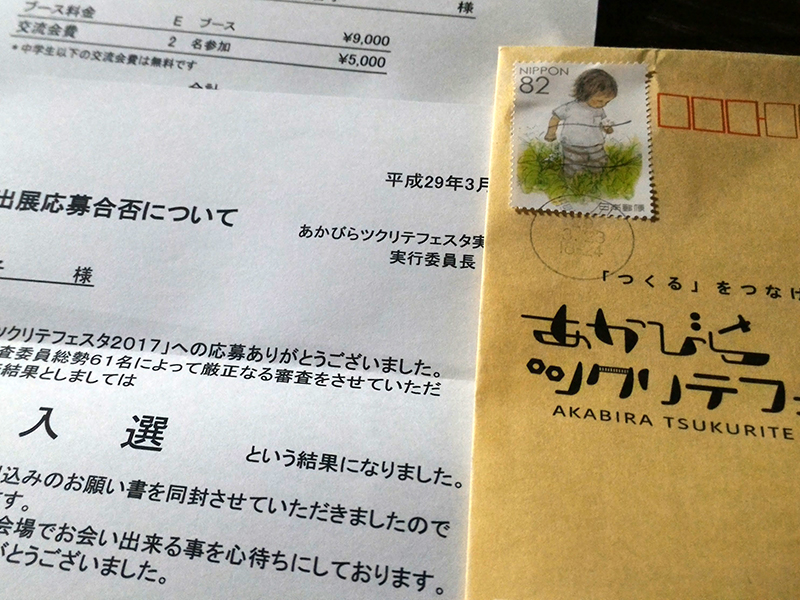 様
ブース料金 E ブース ¥9,000
交流会費 2 名参加 ¥5,000
*中学生以下の交流会費は無料です
平成29年3月
出展応募合否について
あかびらツクリテフェスタ実
実行委員長
様
ツクリテフェスタ2017」への応募ありがとうございました。
査委員総勢61名によって厳正なる審査をさせていただ
結果としましては
入 選 という結果になりました。
込みのお願い書を同封させていただきましたので
す。
会場でお会い出来る事を心待ちにしております。
がとうございました。
NIPPON
82
日本郵便
「つくる」をつなげ
あかびら
ツクリテフェ
AKABIRA TSUKURITE